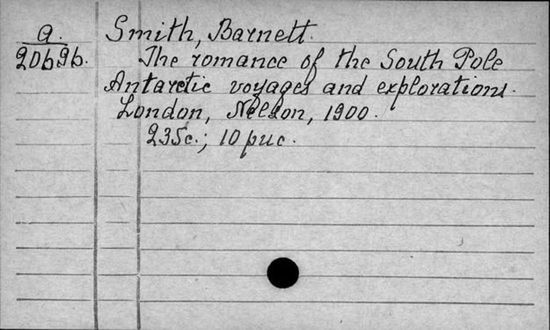 a.
Smith, Barnett.
20b9b.
The romance of the South Pole
Antarctic voyages and explorations.
London, Nelson, 1900.
235c.; 10 рис.